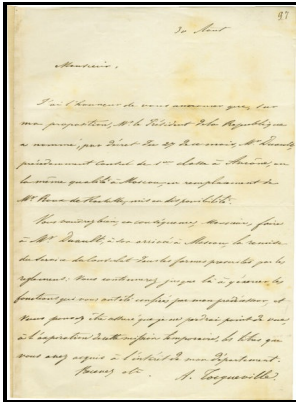 97
30 Août
Monsieur,
J'ai l'honneur de vous annoncer que, sur
ma proposition, Mr. le Président de la République
a nommé, par décret du 27 de ce mois, Mr.
précédemment Consul de 1re classe à
la même qualité à Mossoul, en remplacement de
Mr. mis en disponibilité.
Vous voudrez bien, en conséquence, Monsieur, faire
à Mr. à son arrivée à Mossoul, la remise
du service du Consulat dans les formes prescrites par les
règlements. Vous continuerez jusque là à gérer les
fonctions qui vous ont été confiées par mon prédécesseur, et
vous pouvez être assuré que je ne perdrai point de vue,
à l'expiration de cette mission temporaire, les titres que
vous avez acquis à l'intérêt de mon département.
Recevez etc.
A. Tocqueville.